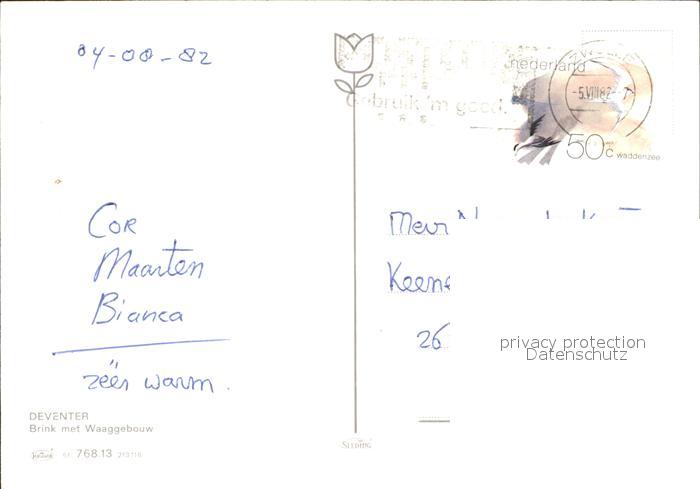 04-08-82
nederland
-5.VIII.82.-7
Gebruik 'm goed.
50c waddenzee
Cor
Maarten
Bianca
zéér warm.
Mevr
Keene
26
privacy protection
Datenschutz
DEVENTER
Brink met Waaggebouw
768.13 213116
SLEDING